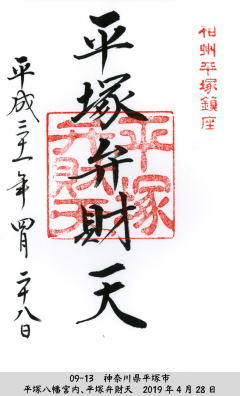 相州平塚鎮座
平塚弁財天
平塚
弁財天
平成三十一年四月二十八日
09-13　神奈川県平塚市
平塚八幡宮内、平塚弁財天　2019年4月28日